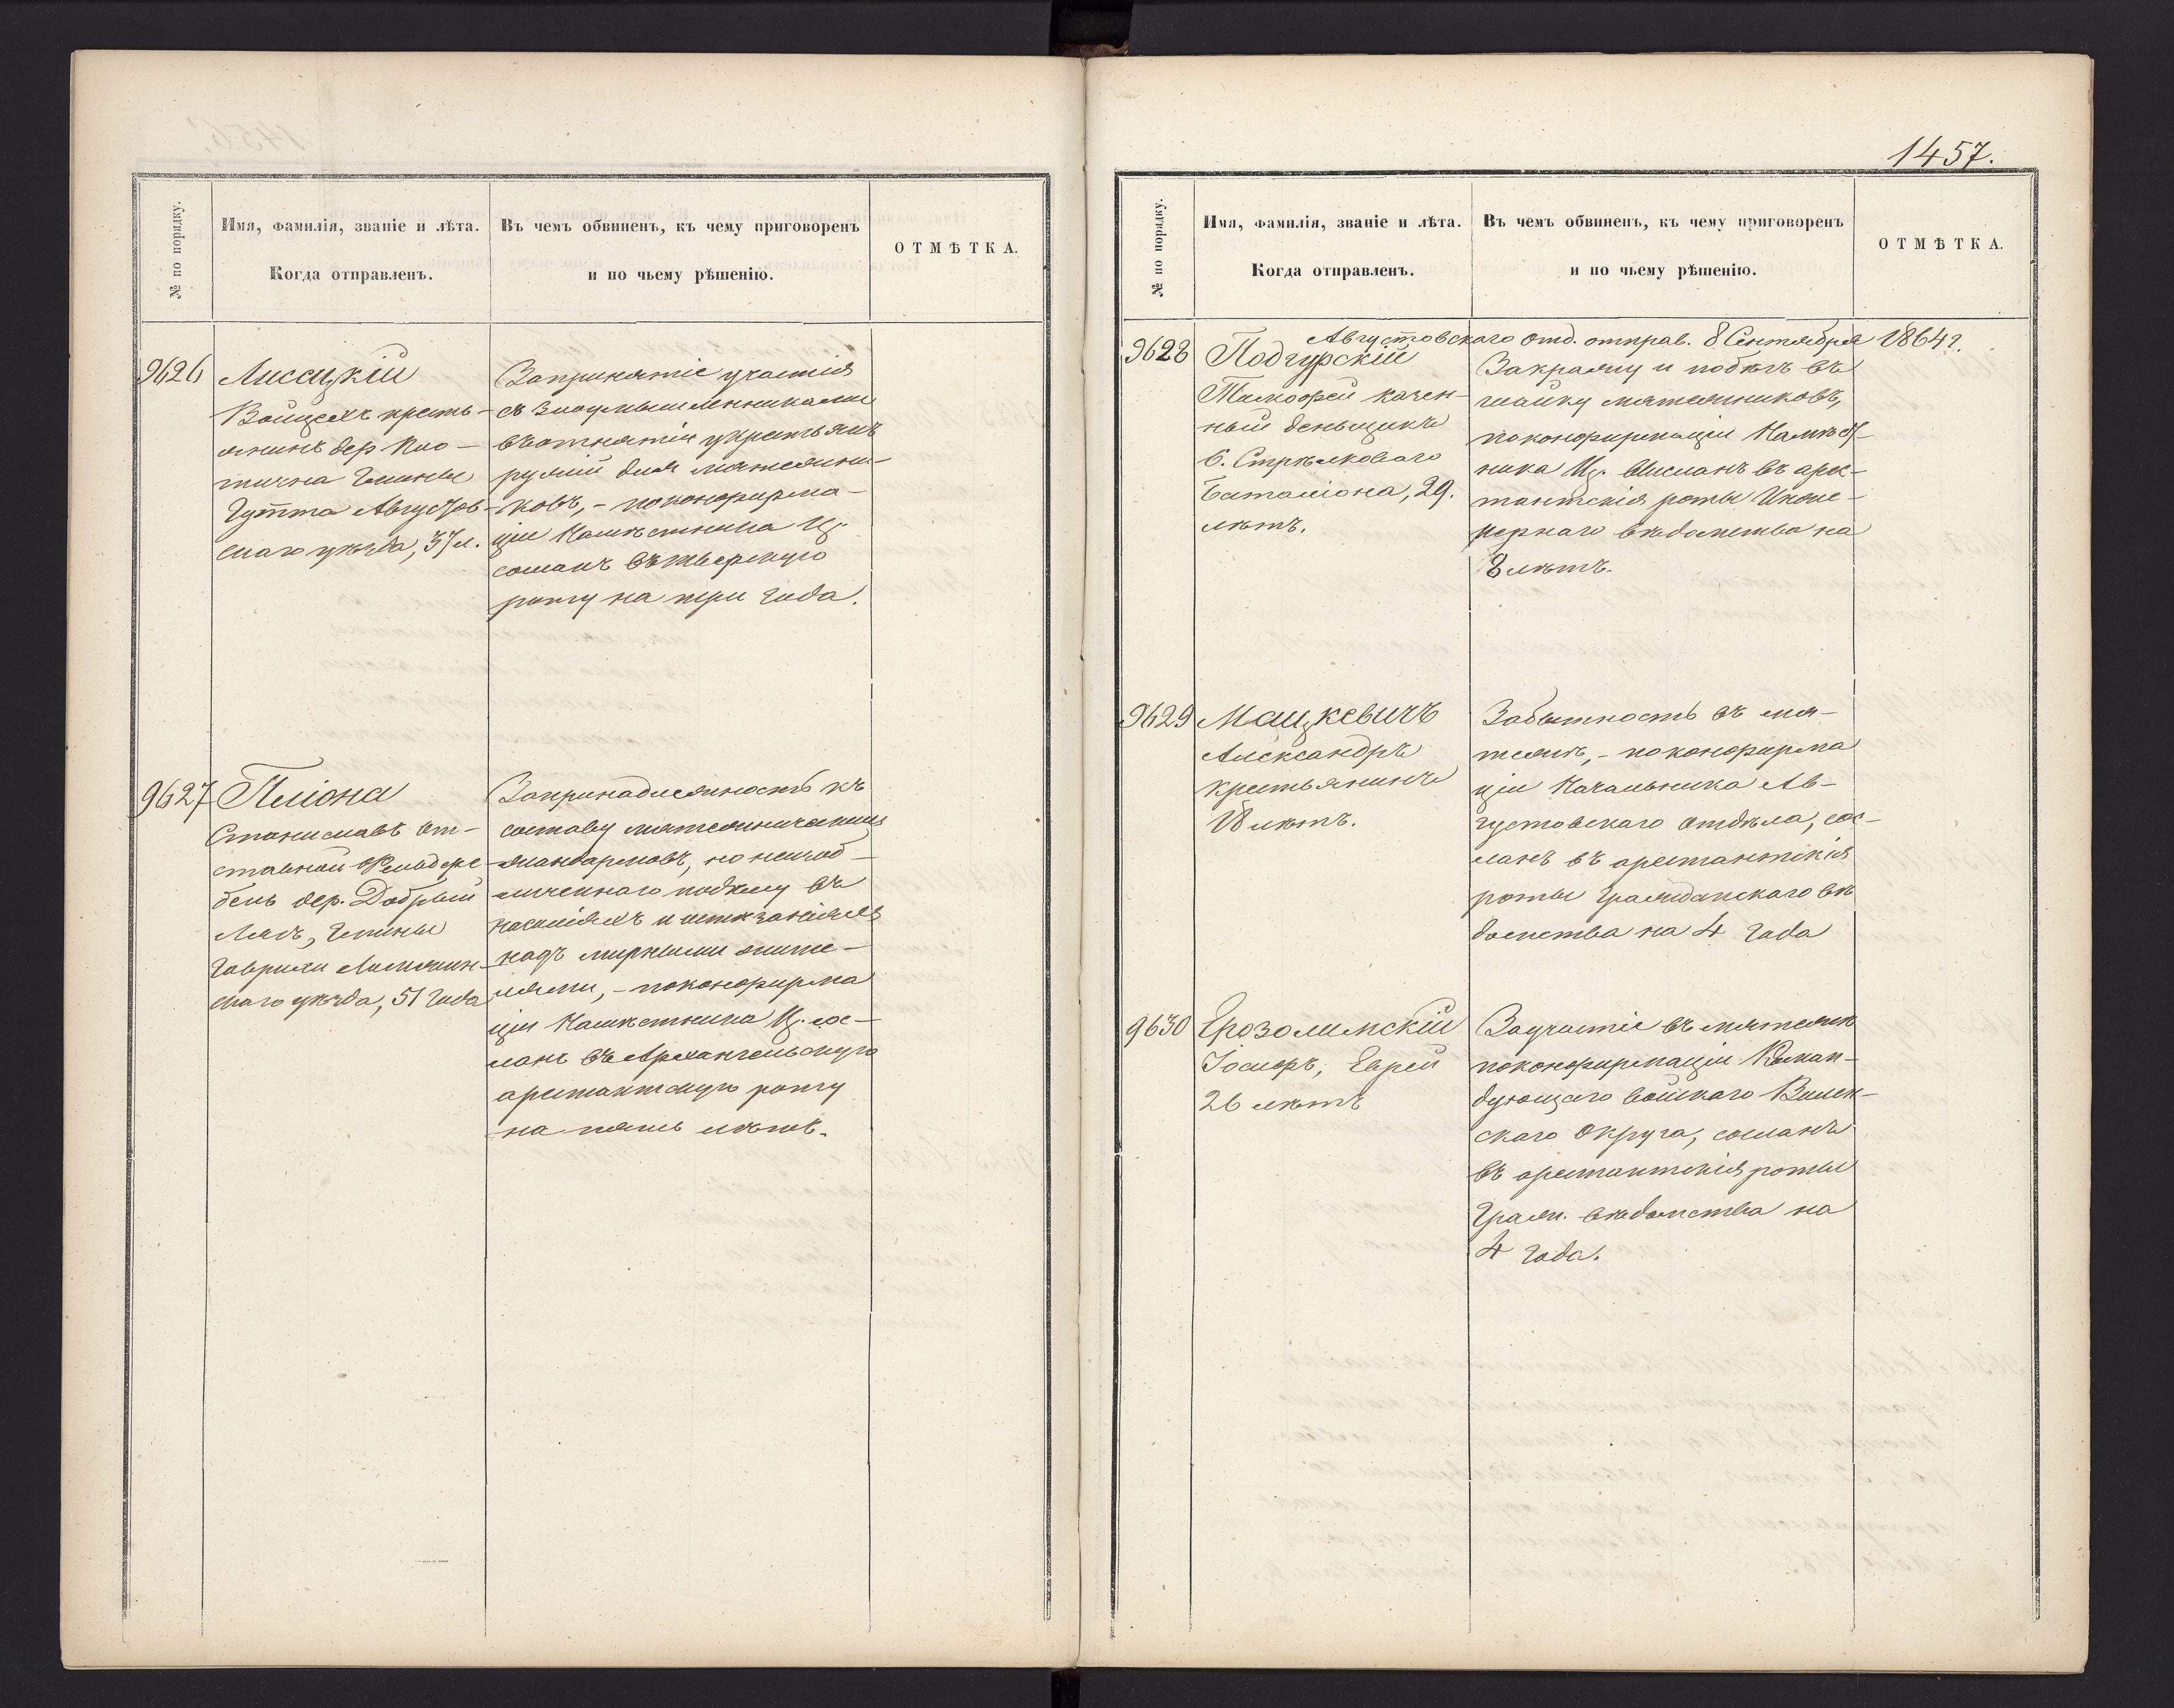 № по порядку.
Имя, фамилія, званіе и лѣта.
Когда отправленъ.
Въ чемъ обвиненъ, къ чему приговоренъ
и по чьему рѣшенію.
ОТМѢТКА.
9626
Лисецкій
Войцехъ кресть-
янинъ дер. Кло-
тична Гмины
Гутта Августов-
скаго уѣзда, 37 л.
За принятіе участія
съ злоумышленниками
въ отнятіи у крестьянъ
ружій для мятежни-
ковъ, - по конфирма-
ціи Намѣстника Ц.
сосланъ въ Тверскую
роту на три года.
9627
Пліона
Станиславъ от-
ставной Фельдфе
бель дер. Добрый
Лясъ, Гмины
Гаврихи Ломжин-
скаго уѣзда, 51 года
За принадлежность къ
составу мятежническихъ
жандармовъ, но неизоб-
личеннаго по дѣлу въ
насиліяхъ и истязаніяхъ
надъ мирными жите-
лями, - по конфирма
ціи Намѣстника Ц. сос-
ланъ въ Архангельскую
арестантскую роту
на пять лѣтъ.
1457.
№ по порядку.
Имя, фамилія, званіе и лѣта.
Когда отправленъ.
Въ чемъ обвиненъ, къ чему приговоренъ
и по чьему рѣшенію.
ОТМѢТКА.
Августовскаго Отд. отправ. 8 Сентября 1864 г.
9628
Подгурскій
Тимофей казен-
ный деньщикъ
6. Стрѣлковаго
Баталіона, 29.
лѣтъ.
За кражу и побѣгъ въ
шайку мятежниковъ,
по конфирмаціи Намѣст-
ника Ц. высланъ въ арес-
тантскія роты Инже-
нернаго вѣдомства на
8 лѣтъ.
9629
Мацкевичъ
Александръ
крестьянинъ
18 лѣтъ.
За бытность въ мя-
тежѣ, - по конфирма
ціи Начальника Ав-
густовскаго отдѣла, сос-
ланъ въ арестантскія
роты Гражданскаго вѣ
домства на 4 года
9630
Ерозолимскій
Іосифъ, Еврей
26 лѣтъ
За участіе въ мятежѣ
по конфирмаціи Коман-
дующаго войскаго Вилен-
скаго Округа, сосланъ
въ арестантскія роты
Гражд. вѣдомства на
4 года.